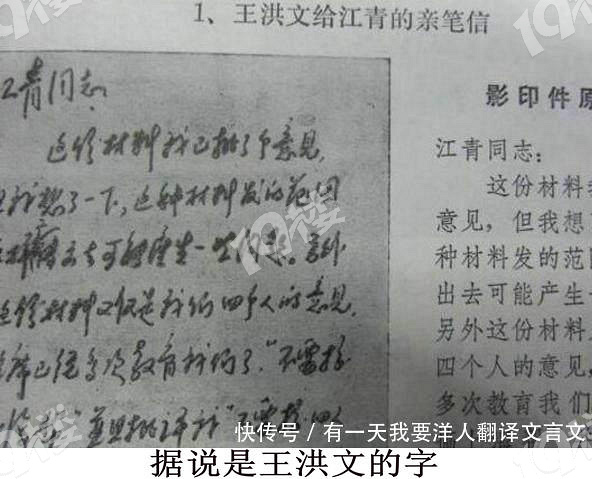 1、王洪文给江青的亲笔信
江青同志
这份材料我已批了个意见,
但我想了一下,这种材料发的范围
去可能产生一些
另外
这份材料又仅是我们四个人的意见,
主席已经多次教育我们了。“不要搞
影印件原
江青同志:
这份材料
意见,但我想
种材料发的范
出去可能产生
另外这份材料
四个人的意见,
多次教育我们
19楼
快传号/有一天我要洋人翻译文言文
据说是王洪文的字